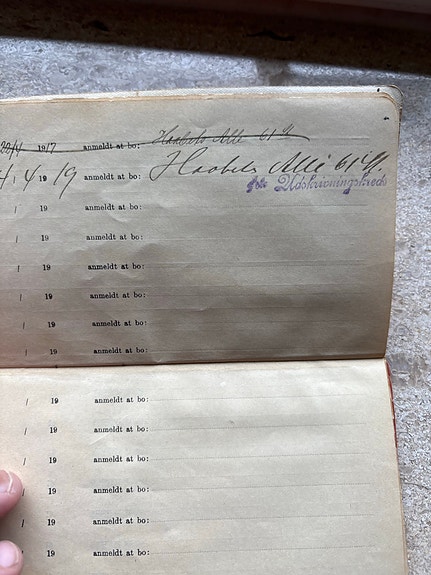 20/4 1917 anmeldt at bo: Haabets Alle 61
4 19 19 anmeldt at bo: Haabets Allé 61
Udskrivningskreds
/ 19 anmeldt at bo:
/ 19 anmeldt at bo:
/ 19 anmeldt at bo:
/ 19 anmeldt at bo:
/ 19 anmeldt at bo:
/ 19 anmeldt at bo:
/ 19 anmeldt at bo:
/ 19 anmeldt at bo:
/ 19 anmeldt at bo:
/ 19 anmeldt at bo:
/ 19 anmeldt at bo:
19 anmeldt at bo: